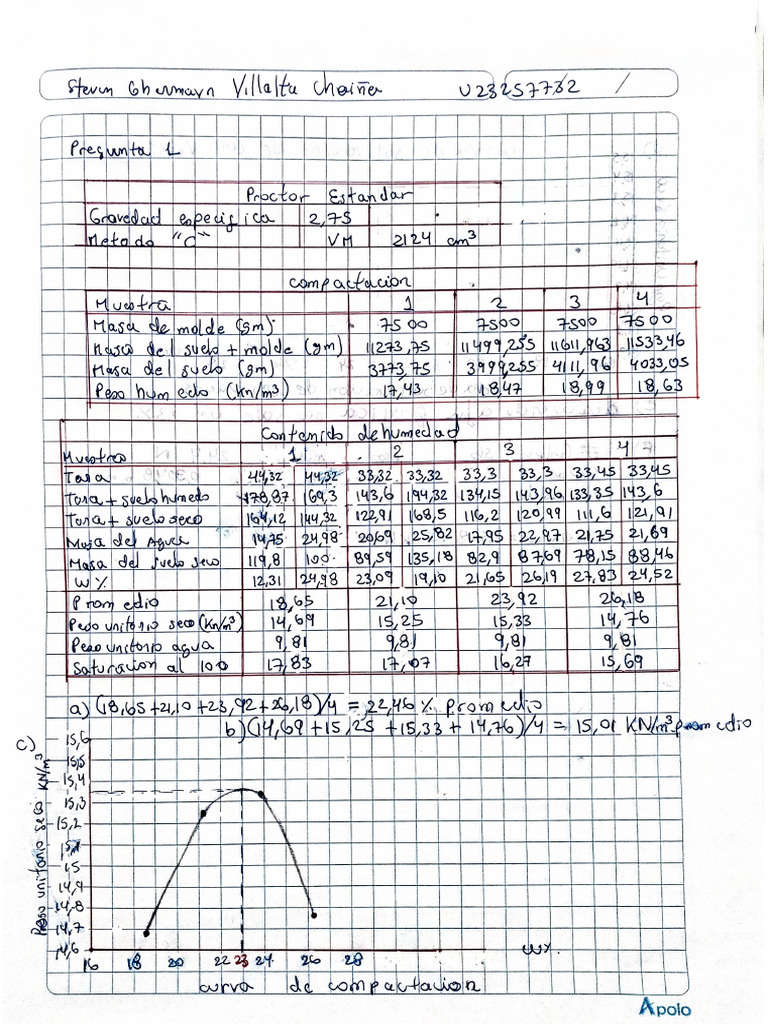 Steven Ghermayn Villalta Choiña U23257732 /
Pregunta 1
Proctor Estandar
Gravedad especifica 2,75
Metodo "C" VM 2124 cm³
Compactacion
Muestra 1 2 3 4
Masa de molde (gm) 7500 7500 7500 7500
Masa del suelo + molde (gm) 11273,75 11499,255 11611,963 11533,46
Masa del suelo (gm) 3773,75 3999,255 4111,96 4033,05
Peso humedo (kn/m³) 17,43 18,47 18,99 18,63
Contenido de humedad
Muestras 1 2 3 4
Tara 44,32 44,32 33,32 33,32 33,3 33,3 33,45 33,45
Tara + suelo humedo 178,87 169,3 143,6 194,32 134,15 143,96 133,35 143,6
Tara + suelo seco 164,12 144,32 122,91 168,5 116,2 120,99 111,6 121,91
Masa del Agua 14,75 24,98 20,69 25,82 17,95 22,97 21,75 21,69
Masa del suelo seco 119,8 100 89,59 135,18 82,9 87,69 78,15 88,46
W% 12,31 24,98 23,09 19,10 21,65 26,19 27,83 24,52
Promedio 18,65 21,10 23,92 26,18
Peso unitario seco (Kn/m³) 14,69 15,25 15,33 14,76
Peso unitario agua 9,81 9,81 9,81 9,81
Saturacion al 100 17,83 17,07 16,27 15,69
a) (18,65+21,10+23,92+26,18)/4 = 22,46 % promedio
b) (14,69+15,25+15,33+14,76)/4 = 15,01 KN/m³ promedio
c)
Peso unitario seco KN/m³
15,6
15,5
15,4
15,3
15,2
15,1
15
14,9
14,8
14,7
14,6
16 18 20 22 23 24 26 28 w%.
curva de compactacion
Apolo